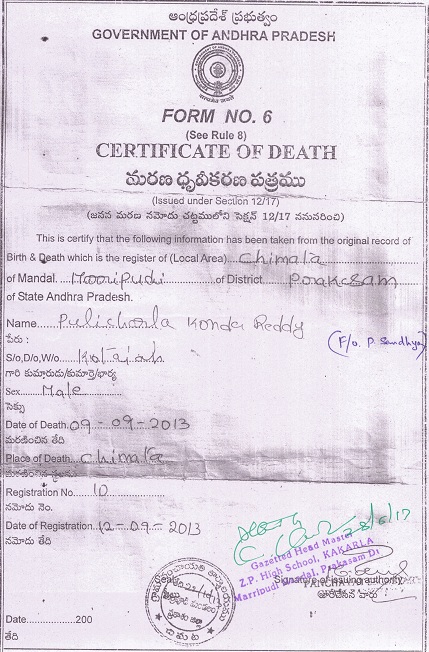 ఆంధ్రప్రదేశ్ ప్రభుత్వం
GOVERNMENT OF ANDHRA PRADESH
FORM NO. 6
(See Rule 8)
CERTIFICATE OF DEATH
మరణ ధృవీకరణ పత్రము
(Issued under Section 12/17)
(జనన మరణ నమోదు చట్టములోని సెక్షన్ 12/17 ననుసరించి)
This is certify that the following information has been taken from the original record of
Birth & Death which is the register of (Local Area) Chimala
of Mandal. Marripudi of District Prakasam
of State Andhra Pradesh.
Name Pulicharla Konda Reddy
పేరు : (F/o. P. Sandhya)
S/o,D/o,W/o Kotaiah
గారి కుమారుడు/కుమార్తె/భార్య
Sex Male
సెక్సు
Date of Death 09-09-2013
మరణించిన తేది
Place of Death Chimala
మరణించిన స్థలము
Registration No. 10
నమోదు నెం.
Date of Registration 12-09-2013
నమోదు తేది
8/6/17
Gazetted Head Master
Z.P. High School, KAKARLA
Marripudi Mandal, Prakasam Dt
Seal
Signature of issuing authority
Date 200
తేది
చిమట